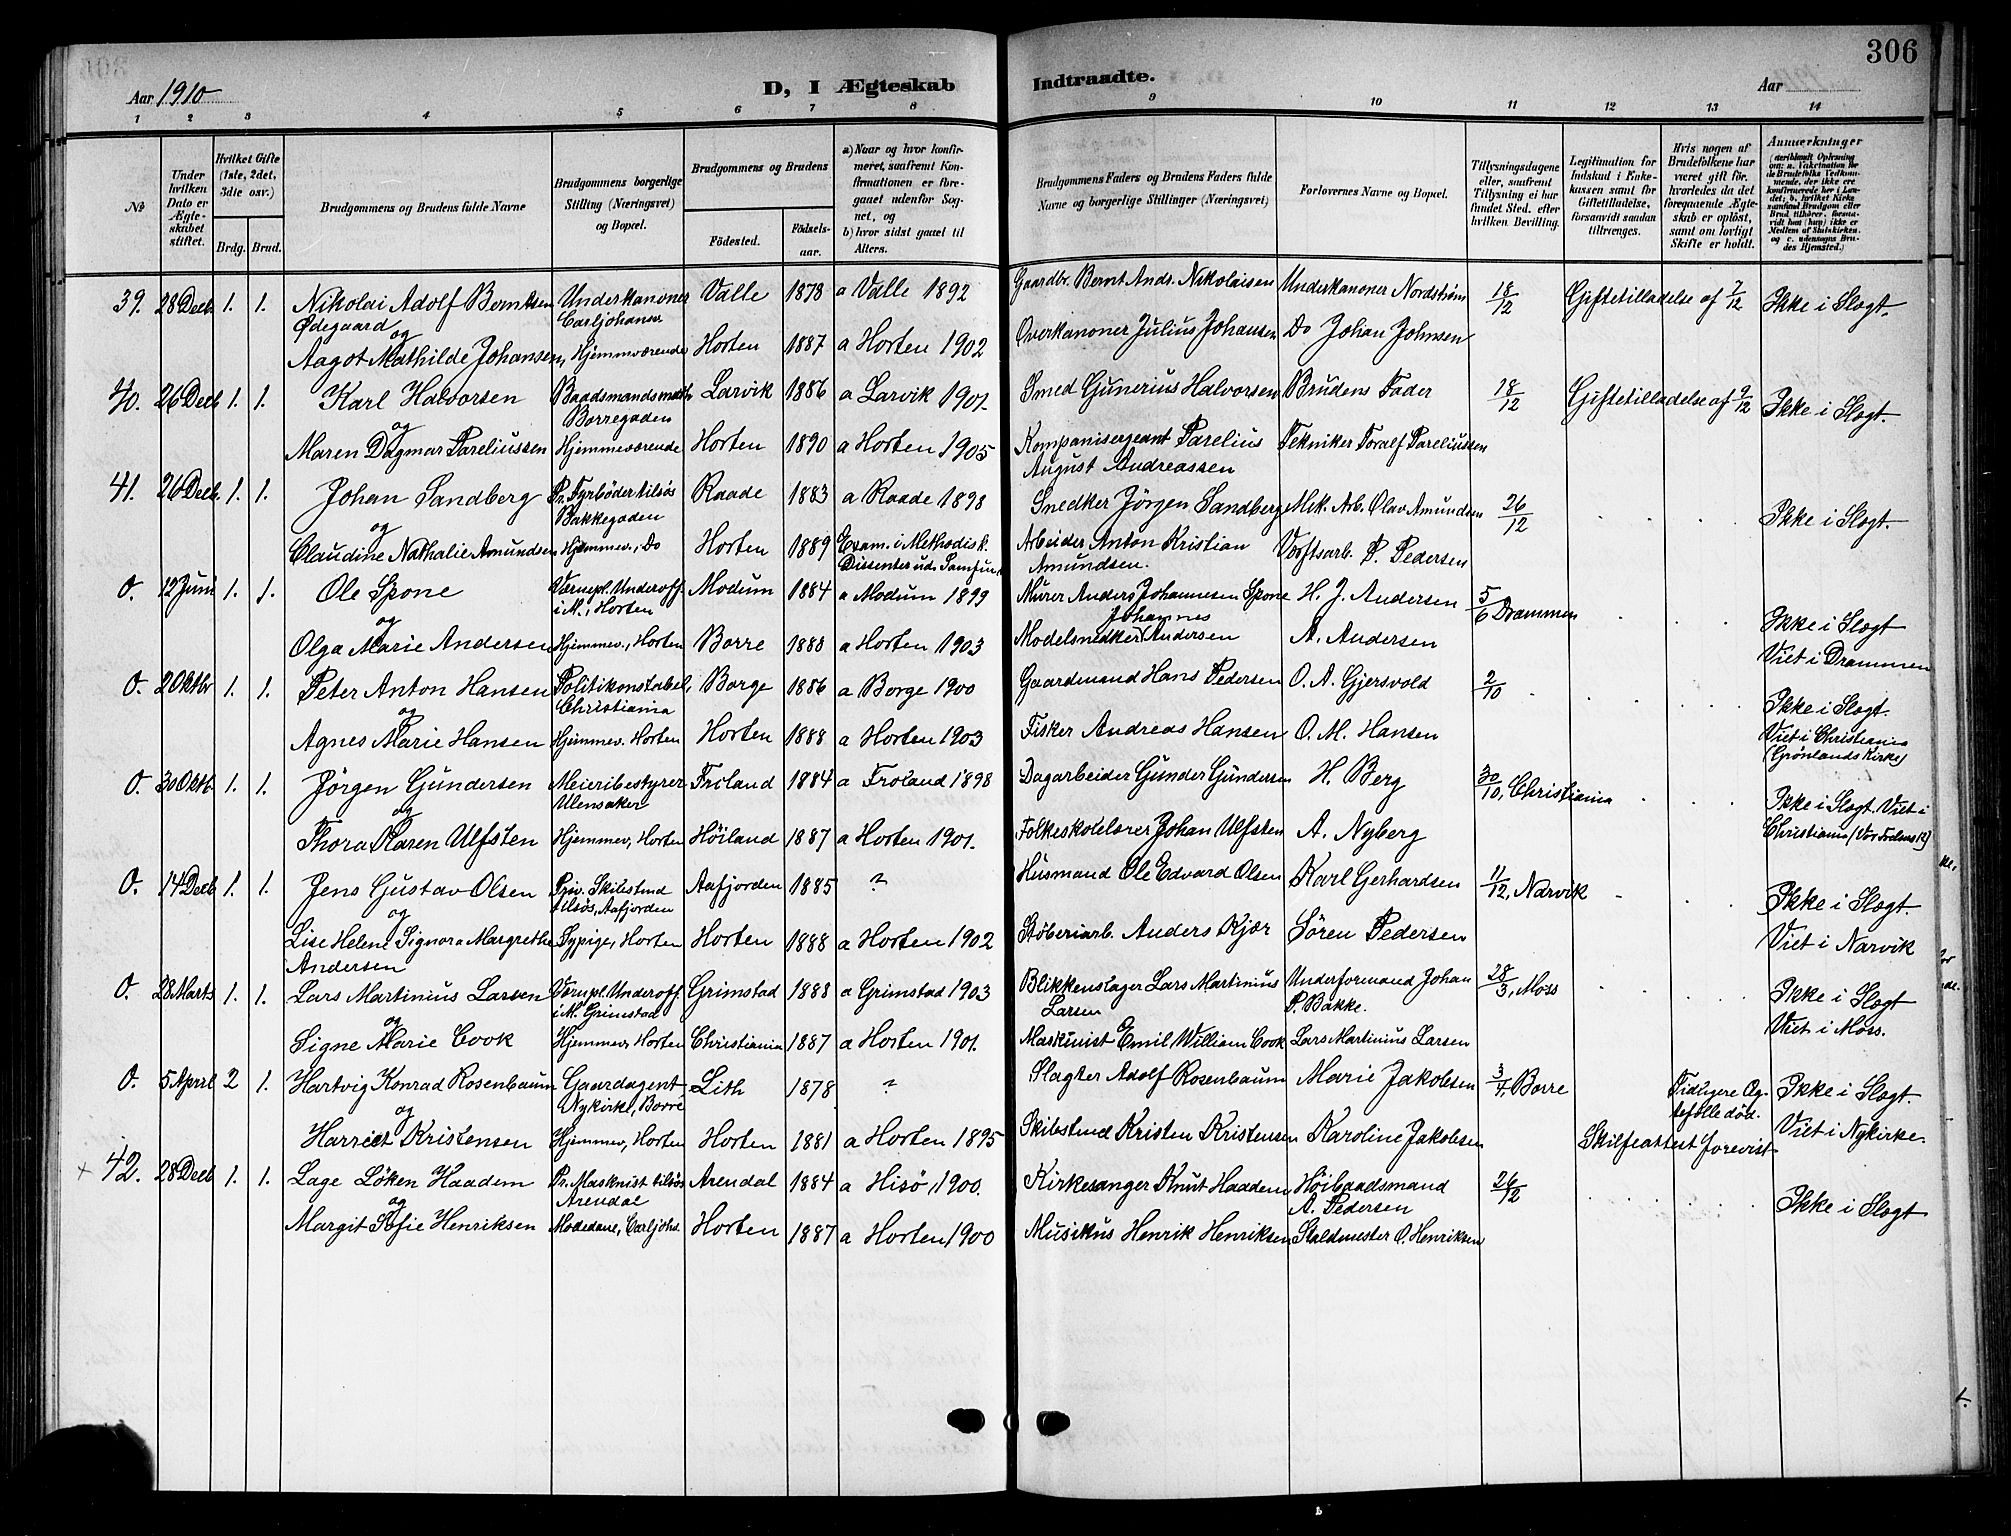 306
Aar 1910
D, I Ægteskab Indtraadte.
Aar
1 2 3 4 5 6 7 8 9 10 11 12 13 14
No
Under hvilken Dato er Ægteskabet stiftet.
Hvilket Gifte (1ste, 2det, 3die osv.)
Brdg. Brud.
Brudgommens og Brudens fulde Navne
Brudgommens borgerlige Stilling (Næringsvei) og Bopæl.
Brudgommens og Brudens
Fødested. Fødselsaar.
a) Naar og hvor konfirmeret, saafremt Konfirmationen er foregaaet udenfor Sognet, og
b) hvor sidst gaaet til Alters.
Brudgommens Faders og Brudens Faders fulde Navne og borgerlige Stillinger (Næringsvei)
Forlovernes Navne og Bopæl.
Tillysningsdagene eller, saafremt Tillysning ei har fundet Sted, efter hvilken Bevilling.
Legitimation for Indskud i Enkekassen samt for Giftetilladelse, forsaavidt saadan tiltrænges.
Hvis nogen af Brudefolkene har været gift før, hvorledes da det foregaaende Ægteskab er opløst, samt om lovligt Skifte er holdt.
Anmærkninger
39. 28 Decb. 1. 1. Nikolai Adolf Berntsen Underkanoner Valle 1878 a Valle 1892 Gaardbr. Bernt Andr. Nikolaisen Underkanoner Nordstrøm 18/12 Giftetilladelse af 7/12 Ikke i Slægt.
Ødegaard Carljohansv.
og
Aagot Mathilde Johansen, Hjemmeværende Horten 1887 a Horten 1902 Overkanoner Julius Johansen Do Johan Johnsen
40. 26 Decb 1. 1. Karl Halvorsen Baadsmandsmath Larvik 1886 a Larvik 1901. Smed Gunerius Halvorsen Brudens Fader 18/12 Giftetilladelse af 9/12 Ikke i Slægt.
og Borregaden
Maren Dagmar Pareliussen Hjemmeværende Horten 1890 a Horten 1905 Kompanisergeant Parelius Tekniker Toralf Pareliussen
August Andreassen
41. 26 Decb. 1. 1. Johan Sandberg Pr. Fyrbøder tilsøs Raade 1883 a Raade 1898 Snedker Jörgen Sandberg Mek. Arb. Olav Amundsen 26/12 Ikke i Slægt.
og Bakkegaden
Claudine Nathalie Amundsen Hjemmev., Do Horten 1889 Exam. i Methodisk. Arbeider Anton Kristian Værftsarb. P. Pedersen
Dissenter ud. Samfund Amundsen.
0. 12 Juni 1. 1. Ole Spone Værnepl. Underoff. Modum 1884 a Modum 1899 Murer Anders Johannesen Spone H. J. Andersen 5/6 Drammen
og i M., Horten Johannes Ikke i Slægt
Olga Marie Andersen Hjemmev., Horten Borre 1888 a Horten 1903 Modelsnedker Andersen A. Andersen Viet i Drammen
0. 2 Oktbr 1. 1. Peter Anton Hansen Politikonstabel, Borge 1886 a Borge 1900 Gaardmand Hans Pedersen O. A. Gjersvold 2/10 Ikke i Slægt.
og Christiania
Agnes Marie Hansen Hjemmev. Horten Horten 1888 a Horten 1903 Fisker Andreas Hansen O. M. Hansen Viet i Christiania
(Grønlands Kirke)
0. 30 Oktb. 1. 1. Jörgen Gundersen Meieribestyrer Froland 1884 a Froland 1898 Dagarbeider Gunder Gundersen H. Berg 30/10, Christiania Ikke i Slægt. Viet i
og Ulensaker
Thora Karen Ulfsten Hjemmev, Horten Höiland 1887 a Horten 1901. Folkeskolelærer Johan Ulfsten A. Nyberg Christiania (Vor Frelsers K)
0. 14 Decb 1. 1. Jens Gustav Olsen Priv. Skibstmd Aafjorden 1885 ? Husmand Ole Edvard Olsen Karl Gerhardsen 11/12, Narvik Ikke i Slægt.
og tilsøs, Aafjorden
Lise Helene Signora Margrethe Sypige, Horten Horten 1888 a Horten 1902 Støberiarb. Anders Kjær Sören Pedersen Viet i Narvik
Andersen
0. 28 Marts 1. 1. Lars Martinius Larsen Værnpl. Underoff. Grimstad 1888 a Grimstad 1903 Blikkenslager Lars Martinius Underformand Johan 28/3, Moss Ikke i Slægt
og i M. Grimstad Larsen P. Bakke.
Signe Marie Cook Hjemmev, Horten Christiania 1887 a Horten 1901. Maskinist Emil William Cook Lars Martinius Larsen Viet i Moss.
0. 5 April 2 1. Hartvig Konrad Rosenbaum Gaardagent Lith 1878 ? Slagter Adolf Rosenbaum Marie Jakobsen 3/4, Borre Tidligere Ægtefælle död. Ikke i Slægt.
og Nykirke, Borre
Harriet Kristensen Hjemmev, Horten Horten 1881 a Horten 1895 Skibstmd Kristen Kristensen Karoline Jakobsen Skifteattest forevist Viet i Nykirke.
+ 42. 28 Decb 1. 1. Lage Löken Haadem Pr. Maskinist tilsøs Arendal 1884 a Hisö, 1900. Kirkesanger Knut Haadem Höibaadsmand 26/12 Ikke i Slægt
og Arendal A. Pedersen
Margit Sofie Henriksen Modedame, Carljohs. Horten 1887 a Horten 1900 Musikus Henrik Henriksen Staldmester O. Henriksen